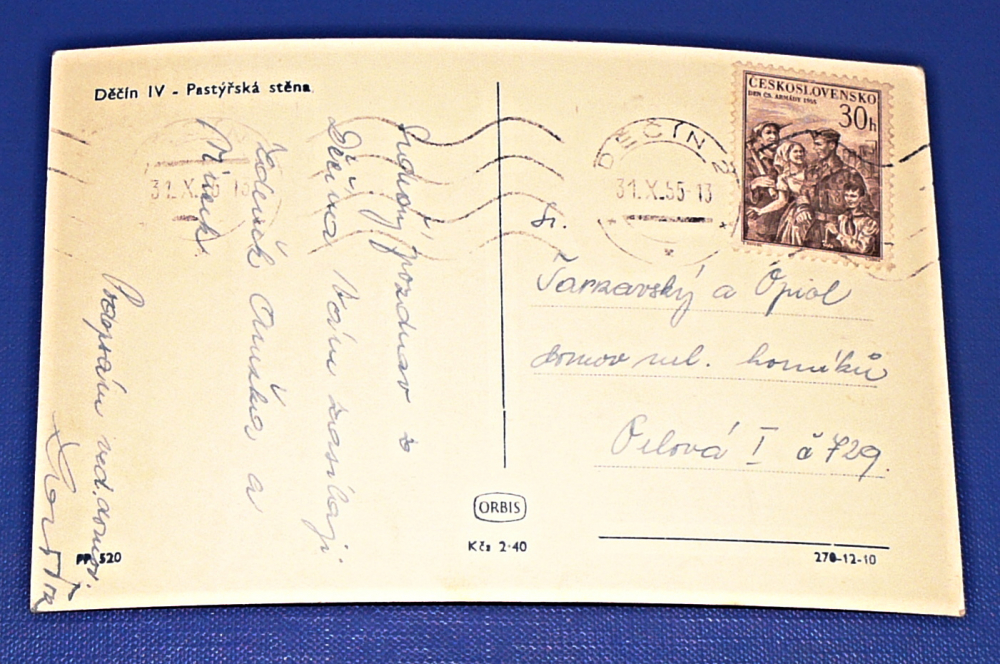 Děčín IV - Pastýřská stěna
ČESKOSLOVENSKO
DEN ČS. ARMÁDY 1955
30h
DĚČÍN 2
31.X.55-13
31.X.55-13
pozdrav z
Děčína Vám zasílají
Zdeněk a
a Opiol
domov ml. horníků
I č 729.
ved. domov.
ORBIS
Kčs 2·40
PP 520
270-12-10